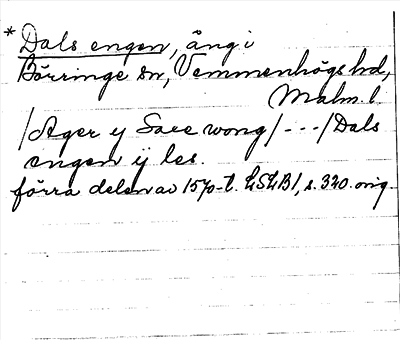 * Dals engen, äng i
Börringe sn, Vemmenhögs hd,
Malm. l.
/Ager y Saee wong/ - - - /Dals
engen ÿ les.
förra delen av 1570-t. LSLB1, s. 320. orig.